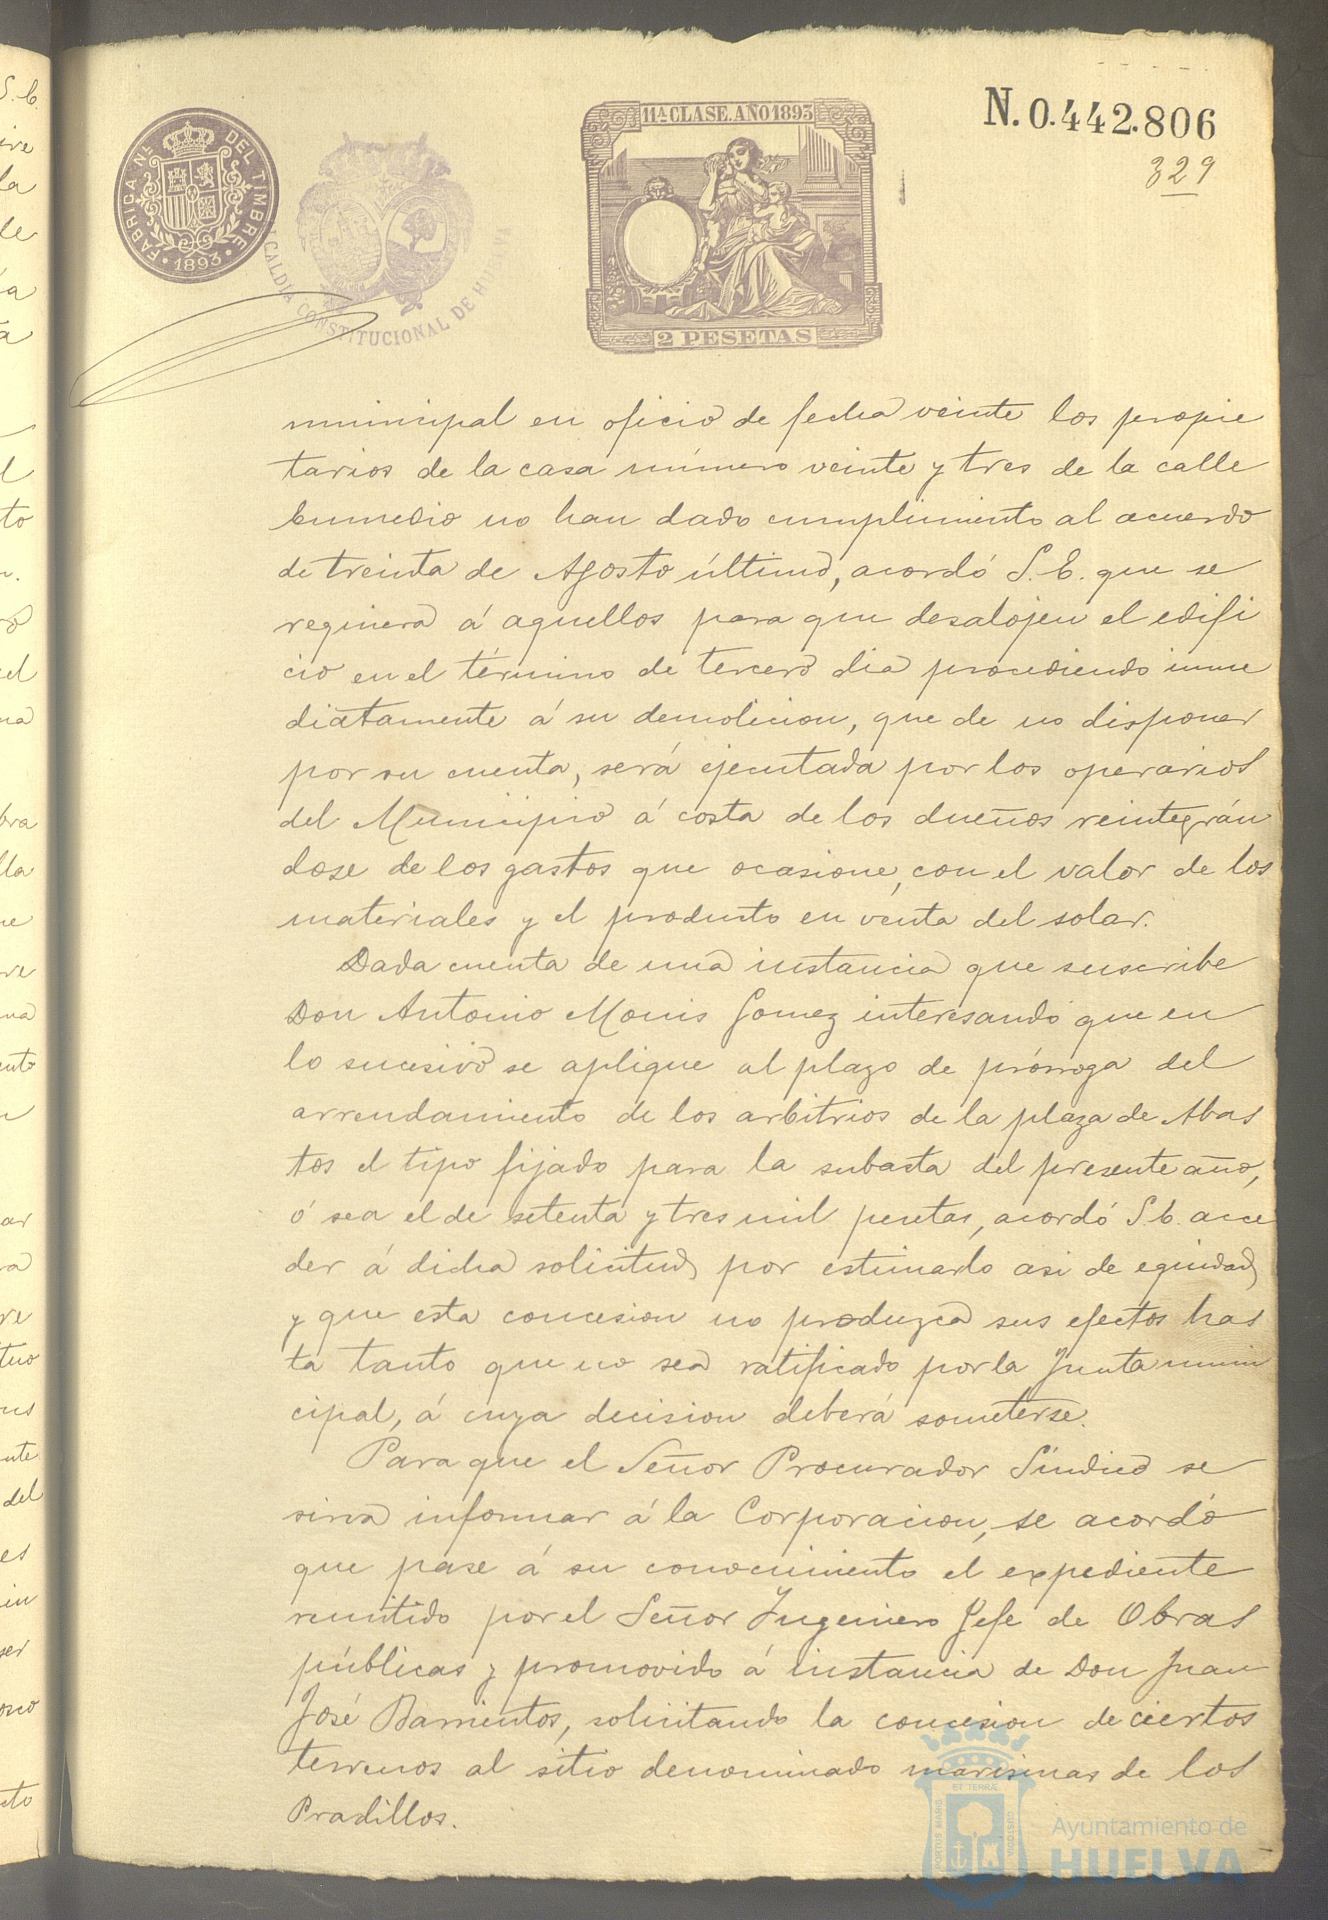 FABRICA N.L DEL TIMBRE
1893
ALCALDIA CONSTITUCIONAL DE HUELVA
11ª CLASE. AÑO 1893
2 PESETAS
N. 0.442.806
329
municipal en oficio de fecha veinte los propie
tarios de la casa número veinte y tres de la calle
Enmedio no han dado cumplimiento al acuerdo
de treinta de Agosto último, acordó S.E. que se
requiera á aquellos para que desalojen el edifi
cio en el término de tercero dia procediendo inme
diatamente á su demolicion, que de no disponer
por su cuenta, será ejecutada por los operarios
del Municipio á costa de los dueños reintegrán
dose de los gastos que ocasione, con el valor de los
materiales y el producto en venta del solar.
Dada cuenta de una instancia que suscribe
Don Antonio Monis Gomez interesando que en
lo sucesivo se aplique al plazo de prórroga del
arrendamiento de los arbitrios de la plaza de Abas
tos el tipo fijado para la subasta del presente año,
ó sea el de setenta y tres mil pesetas, acordó S.E. acce
der á dicha solicitud por estimarlo asi de equidad
y que esta concesion no produzca sus efectos has
ta tanto que no sea ratificado por la Junta muni
cipal, á cuya decision deberá someterse.
Para que el Señor Procurador Síndico se
sirva informar á la Corporacion, se acordó
que pase á su conocimiento el expediente
remitido por el Señor Ingeniero Jefe de Obras
públicas y promovido á instancia de Don Juan
José Barrientos, solicitando la concesion de ciertos
terrenos al sitio denominado marismas de los
Pradillos.
Ayuntamiento de
HUELVA